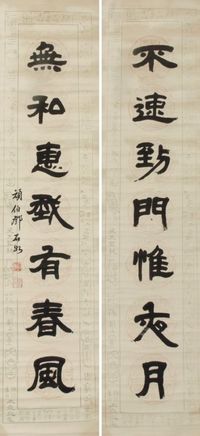 不速到門惟夜月
無私惠我有春風
頑伯鄧石如